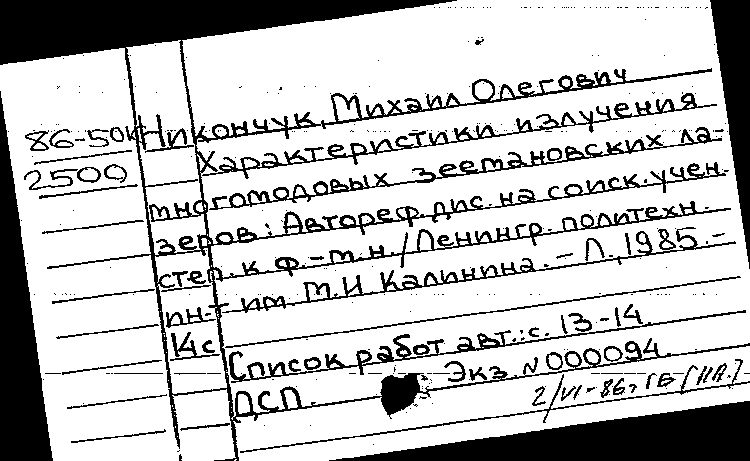 86-50к Никончук, Михаил Олегович
2500 Характеристики излучения
многомодовых зеемановских ла-
зеров: Автореф. дис. на соиск. учен.
степ. к. ф.-м. н. / Ленингр. политехн.
ин-т им. М.И Калинина. - Л., 1985. -
14 с.
Список работ авт.: с. 13-14.
ДСП. Экз. N 000094.
2/VI-86г.